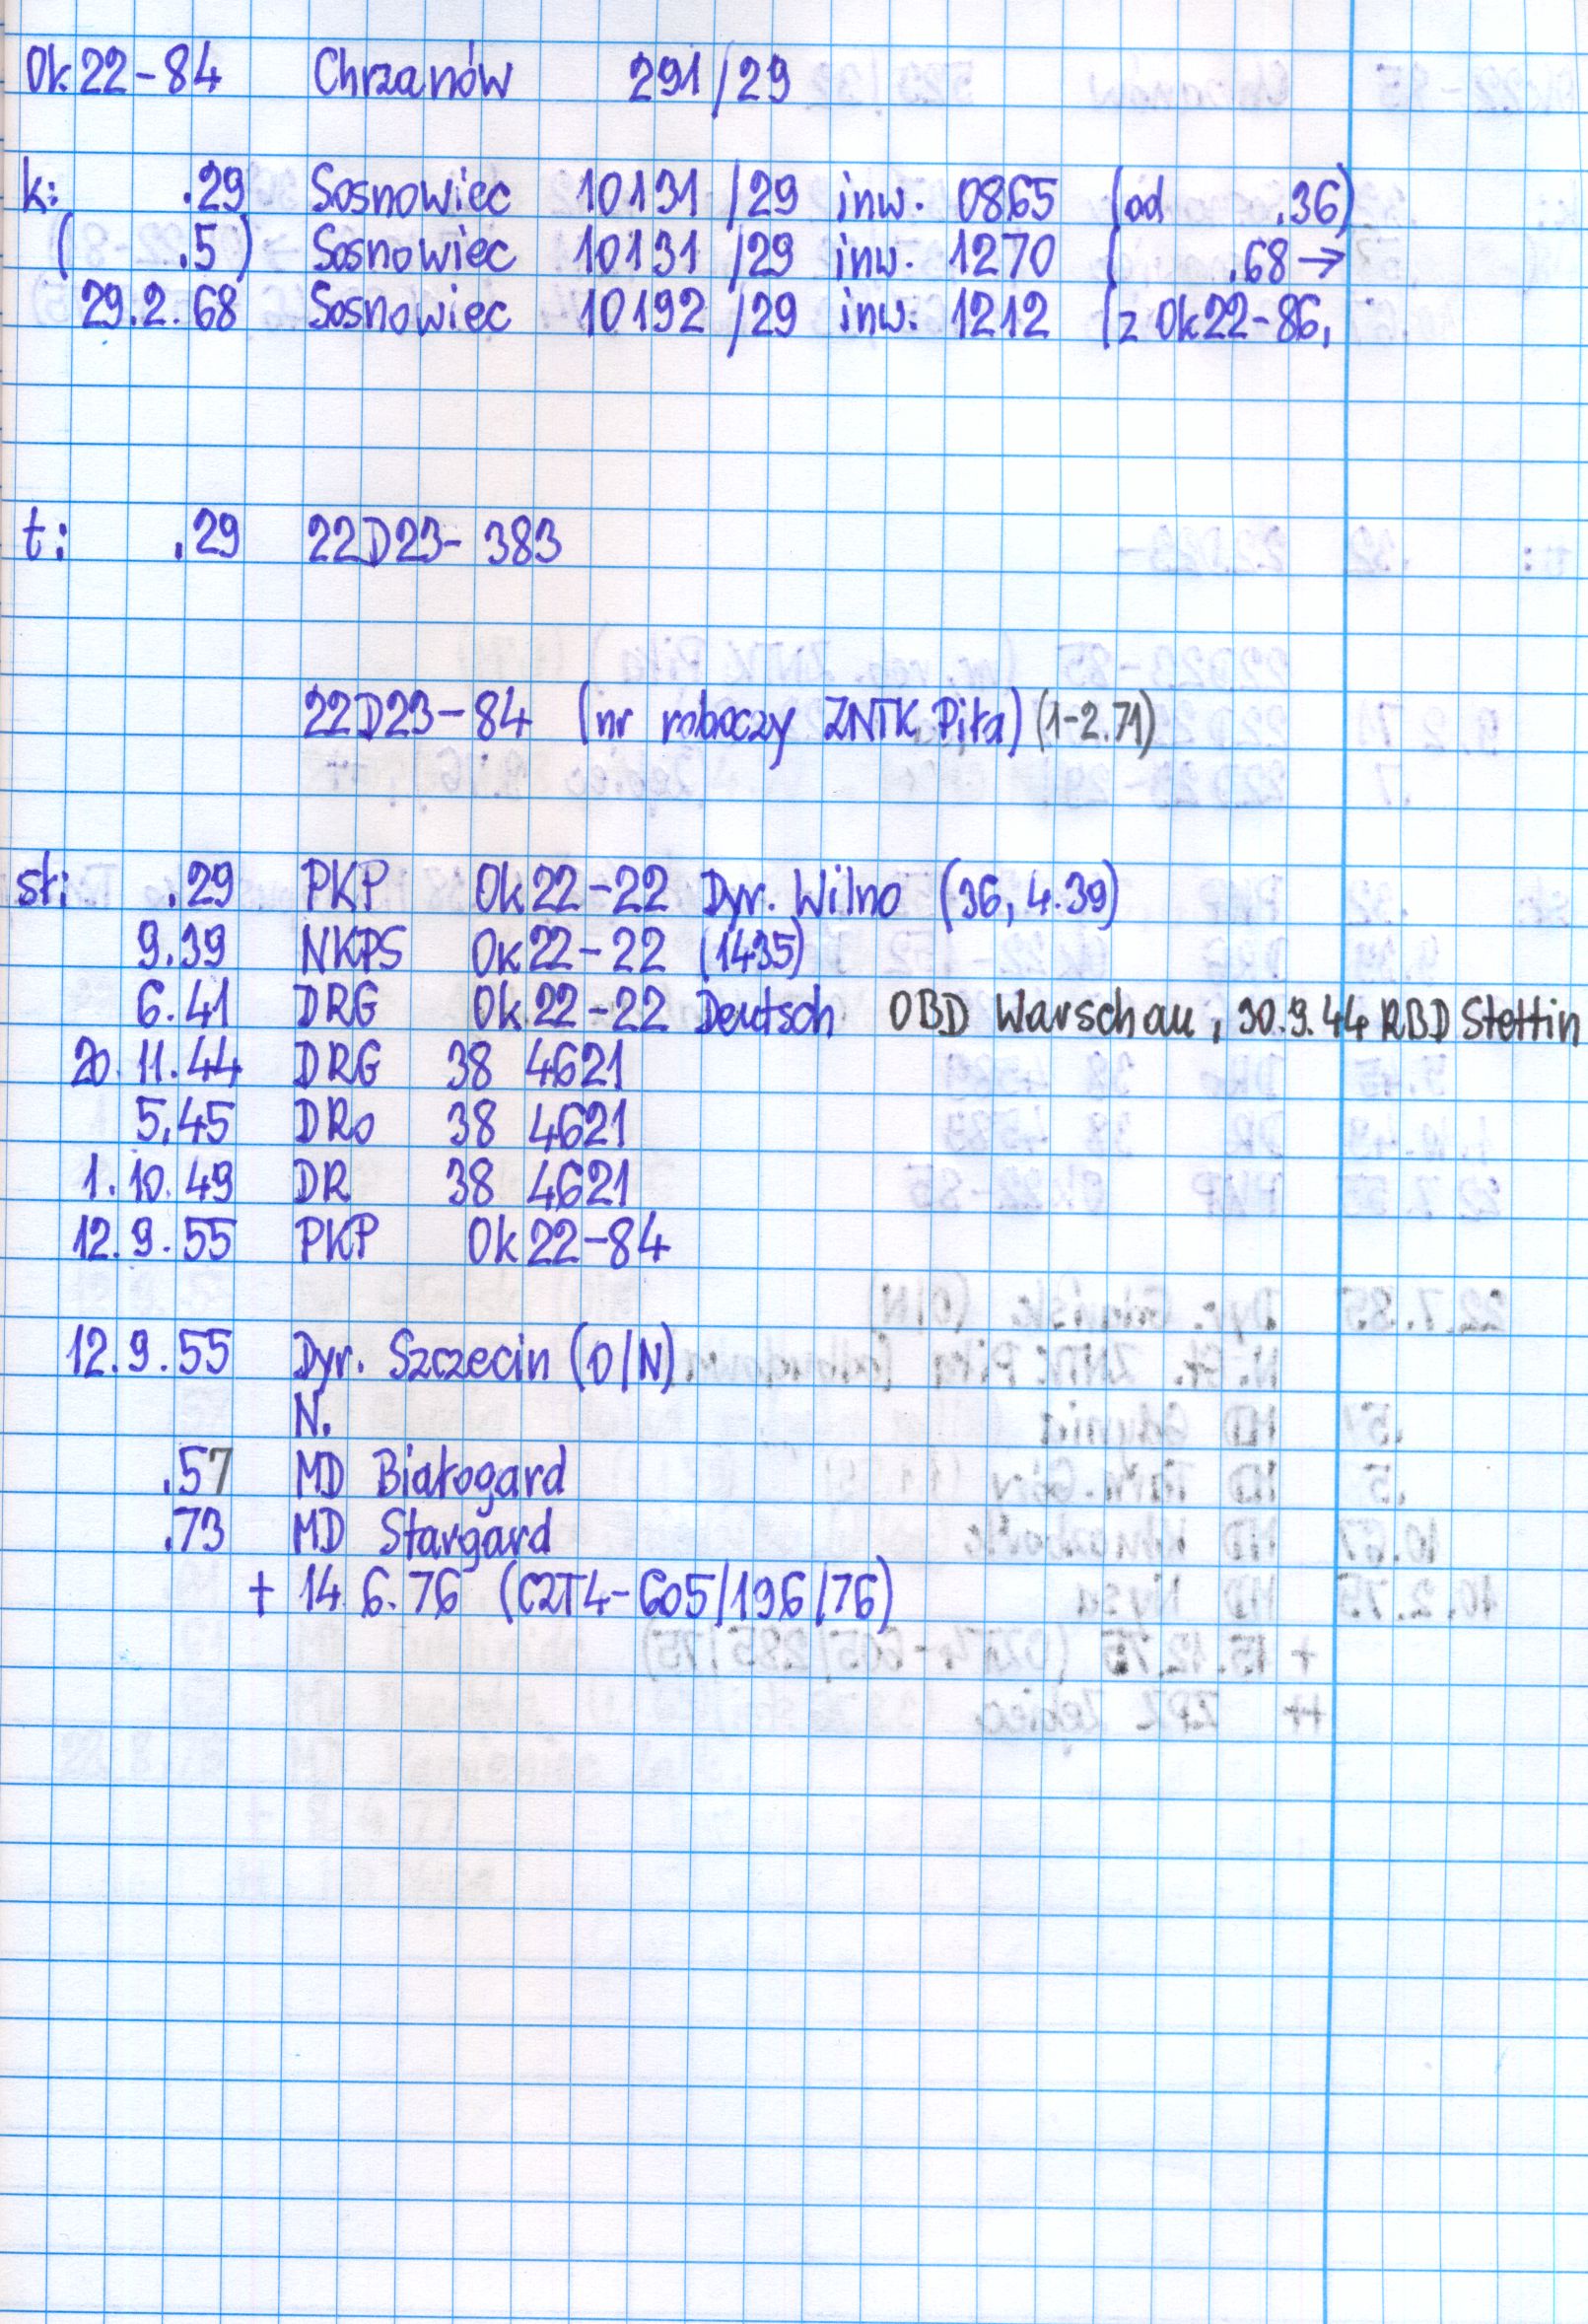 Ok22-84 Chrzanów 291/29
k: .29 Sosnowiec 10131 /29 inw. 0865 (od .36)
( .5 ) Sosnowiec 10131 /29 inw. 1270 ( .68→
29.2.68 Sosnowiec 10192 /29 inw. 1212 (z Ok22-86,
t: .29 22D23- 383
22D23-84 (nr roboczy ZNTK Piła) (1-2.71)
sł: .29 PKP Ok22-22 Dyr. Wilno (36, 4.39)
9.39 NKPS Ok22-22 (1435)
6.41 DRG Ok22-22 Deutsch OBD Warschau, 30.9.44 RBD Stettin
20.11.44 DRG 38 4621
5.45 DRo 38 4621
1.10.49 DR 38 4621
12.9.55 PKP Ok22-84
12.9.55 Dyr. Szczecin (O/N)
N.
.57 MD Białogard
.73 MD Stargard
+ 14.6.76 (C2T4-605/196/76)